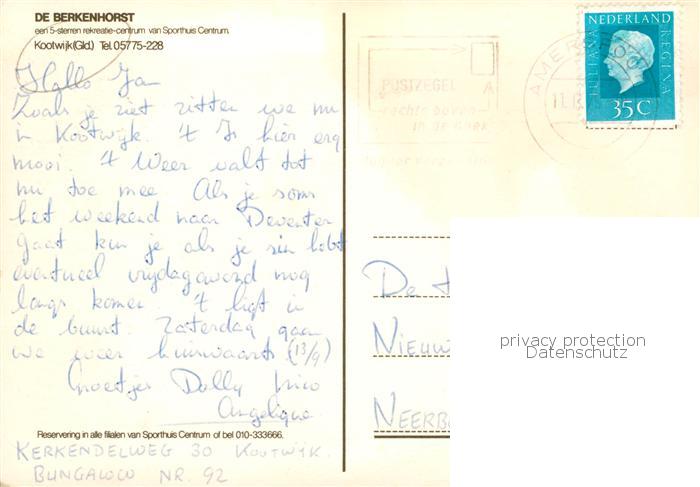 DE BERKENHORST
een 5-sterren rekreatie-centrum van Sporthuis Centrum.
Kootwijk (Gld.) Tel. 05775-228
Hallo Jan
Zoals je ziet zitten we nu
in Kootwijk. 't Is hier erg
mooi. 't Weer valt tot
nu toe mee. Als je soms
het weekend naar Deventer
gaat kun je als je zin hebt
eventueel vrijdagavond nog
langs komen. 't ligt in
de buurt. Zaterdag gaan
we weer huiswaarts (13/9)
Groetjes Dolly Nico
Angelique.
Reservering in alle filialen van Sporthuis Centrum of bel 010-333666.
KERKENDELWEG 30 KOOTWIJK.
BUNGALOW NR. 92
POSTZEGEL
rechts boven
in de hoek
AMERSFOORT
NEDERLAND
JULIANA REGINA
35 C
De
NIEUW
NEERB
privacy protection
Datenschutz